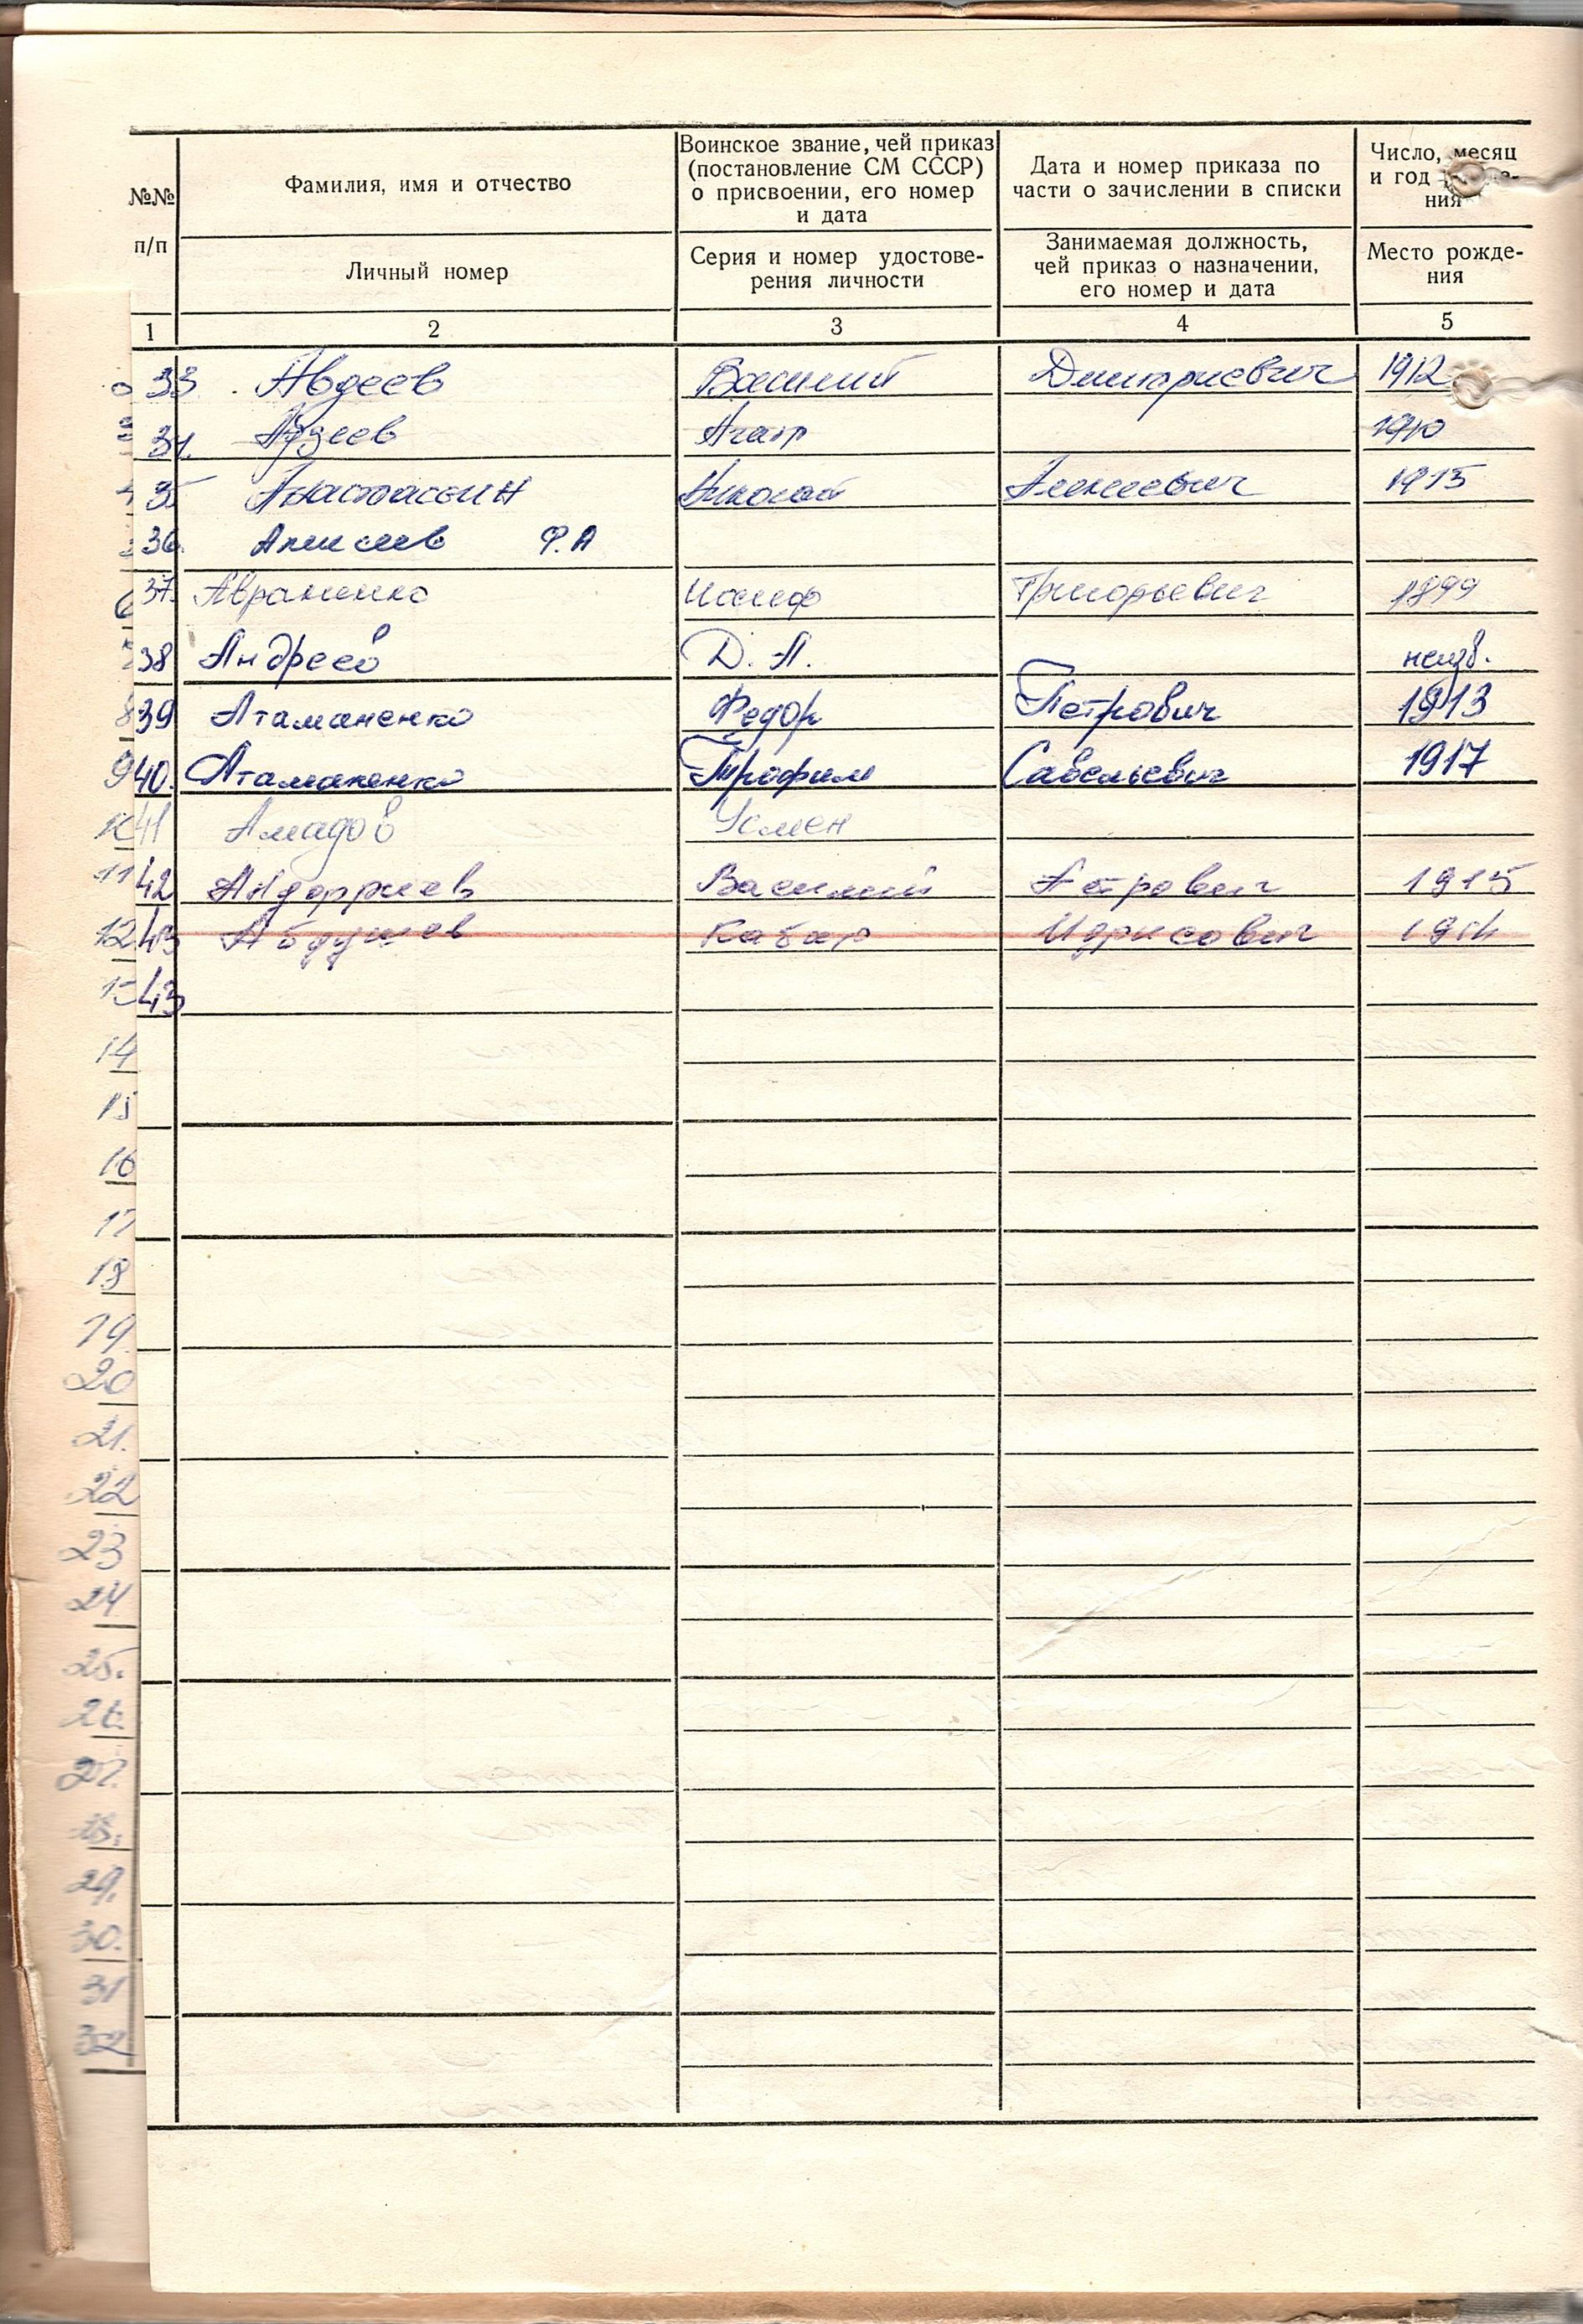 №№ п/п
Фамилия, имя и отчество
Личный номер
Воинское звание, чей приказ
(постановление СМ СССР)
о присвоении, его номер
и дата
Серия и номер удостове-
рения личности
Дата и номер приказа по
части о зачислении в списки
Занимаемая должность,
чей приказ о назначении,
его номер и дата
Число, месяц
и год
ния
Место рожде-
ния
1 2 3 4 5
33 Авдеев Василий Дмитриевич 1912
34. Агап 1910
35 Анастасьин Николай Алексеевич 1915
36. Ф.А
37. Авраменко Иосиф Григорьевич 1899
38 Андреев Д. А. неизв.
39 Атаманенко Федор Петрович 1913
40. Атаманенко Трофим Савельевич 1917
41 Амадов Усмен
42 Василий Петрович 1915
43 Идрисович 1914
43
8
9
11
12
14
15
16
17
18
19.
20
21.
22
23
24
25.
26.
27.
28.
29.
30.
31
32